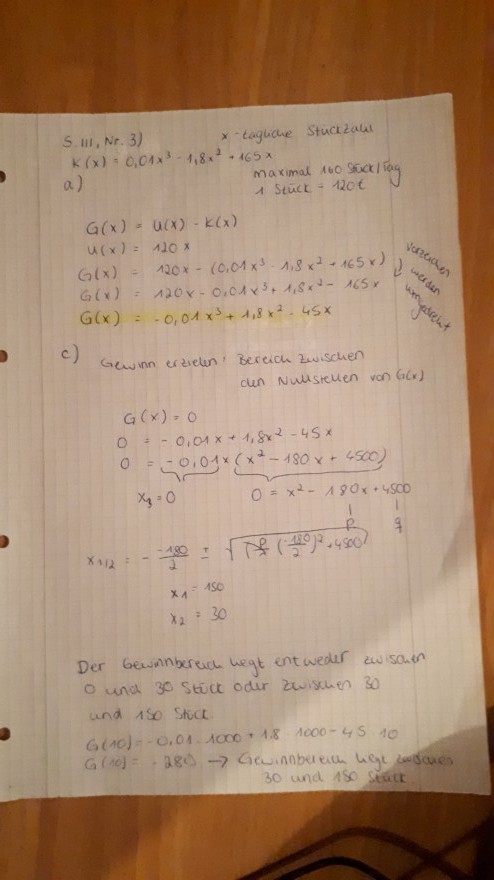 S. III, Nr. 3)
x - tägliche Stückzahl
K(x) = 0,01x³ - 1,8x² + 165x
maximal 160 Stück/Tag
a)
1 Stück = 120€
G(x) = U(x) - K(x)
U(x) = 120x
G(x) = 120x - (0,01x³ - 1,8x² + 165x)
G(x) = 120x - 0,01x³ + 1,8x² - 165x
Vorzeichen
werden
umgedreht
G(x) = -0,01x³ + 1,8x² - 45x
c) Gewinn erzielen: Bereich zwischen
den Nullstellen von G(x)
G(x) = 0
0 = -0,01x + 1,8x² - 45x
0 = -0,01x (x² - 180x + 4500)
x₃ = 0
0 = x² - 180x + 4500
p q
x₁/₂ = - -180/2 ± √((-180/2)² + 4500)
x₁ = 150
x₂ = 30
Der Gewinnbereich liegt entweder zwischen
0 und 30 Stück oder zwischen 30
und 150 Stück.
G(10) = -0,01 · 1000 + 1,8 · 1000 - 45 · 10
G(10) = -280 → Gewinnbereich liegt zwischen
30 und 150 Stück.